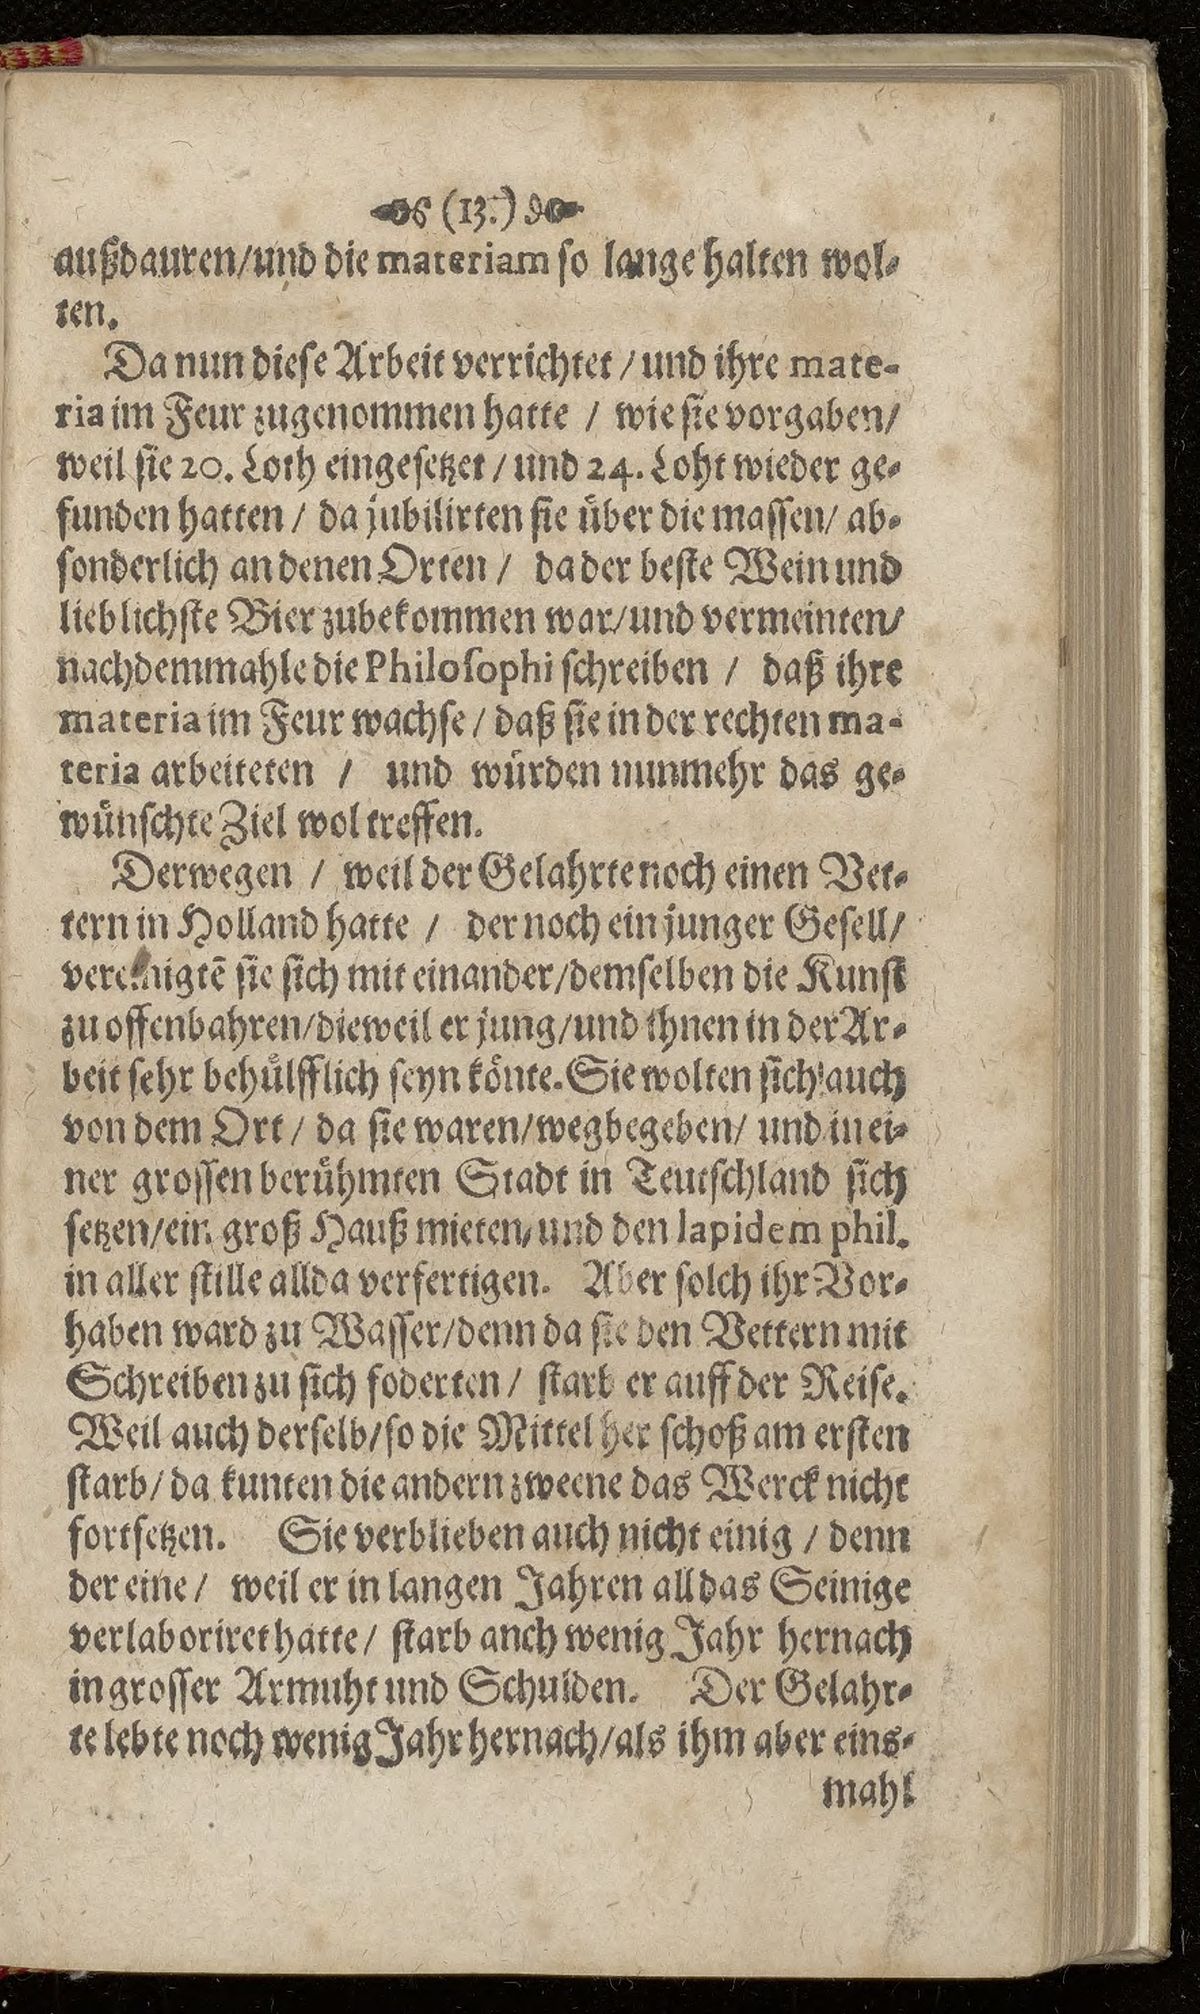 (13.)
außdauren/und die materiam so lange halten wol-
ten.
Da nun diese Arbeit verrichtet / und ihre mate-
ria im Feur zugenommen hatte / wie sie vorgaben/
weil sie 20. Loth eingesetzet / und 24. Loht wieder ge-
funden hatten / da jubilirten sie über die massen/ ab-
sonderlich an denen Orten / da der beste Wein und
lieblichste Bier zubekommen war/und vermeinten/
nachdemmahle die Philosophi schreiben / daß ihre
materia im Feur wachse / daß sie in der rechten ma-
teria arbeiteten / und würden nunmehr das ge-
wünschte Ziel wol treffen.
Derwegen / weil der Gelahrte noch einen Vet-
tern in Holland hatte / der noch ein junger Gesell/
vereinigtē sie sich mit einander/demselben die Kunst
zu offenbahren/dieweil er jung/und ihnen in der Ar-
beit sehr behülfflich seyn könte. Sie wolten sich auch
von dem Ort / da sie waren/wegbegeben/ und in ei-
ner grossen berühmten Stadt in Teutschland sich
setzen/ein groß Hauß mieten/und den lapidem phil.
in aller stille allda verfertigen. Aber solch ihr Vor-
haben ward zu Wasser/denn da sie den Vettern mit
Schreiben zu sich foderten / starb er auff der Reise.
Weil auch derselb/so die Mittel her schoß am ersten
starb/ da kunten die andern zweene das Werck nicht
fortsetzen. Sie verblieben auch nicht einig / denn
der eine / weil er in langen Jahren all das Seinige
verlaboriret hatte / starb anch wenig Jahr hernach
in grosser Armuht und Schulden. Der Gelahr-
te lebte noch wenig Jahr hernach/als ihm aber eins-
mahl